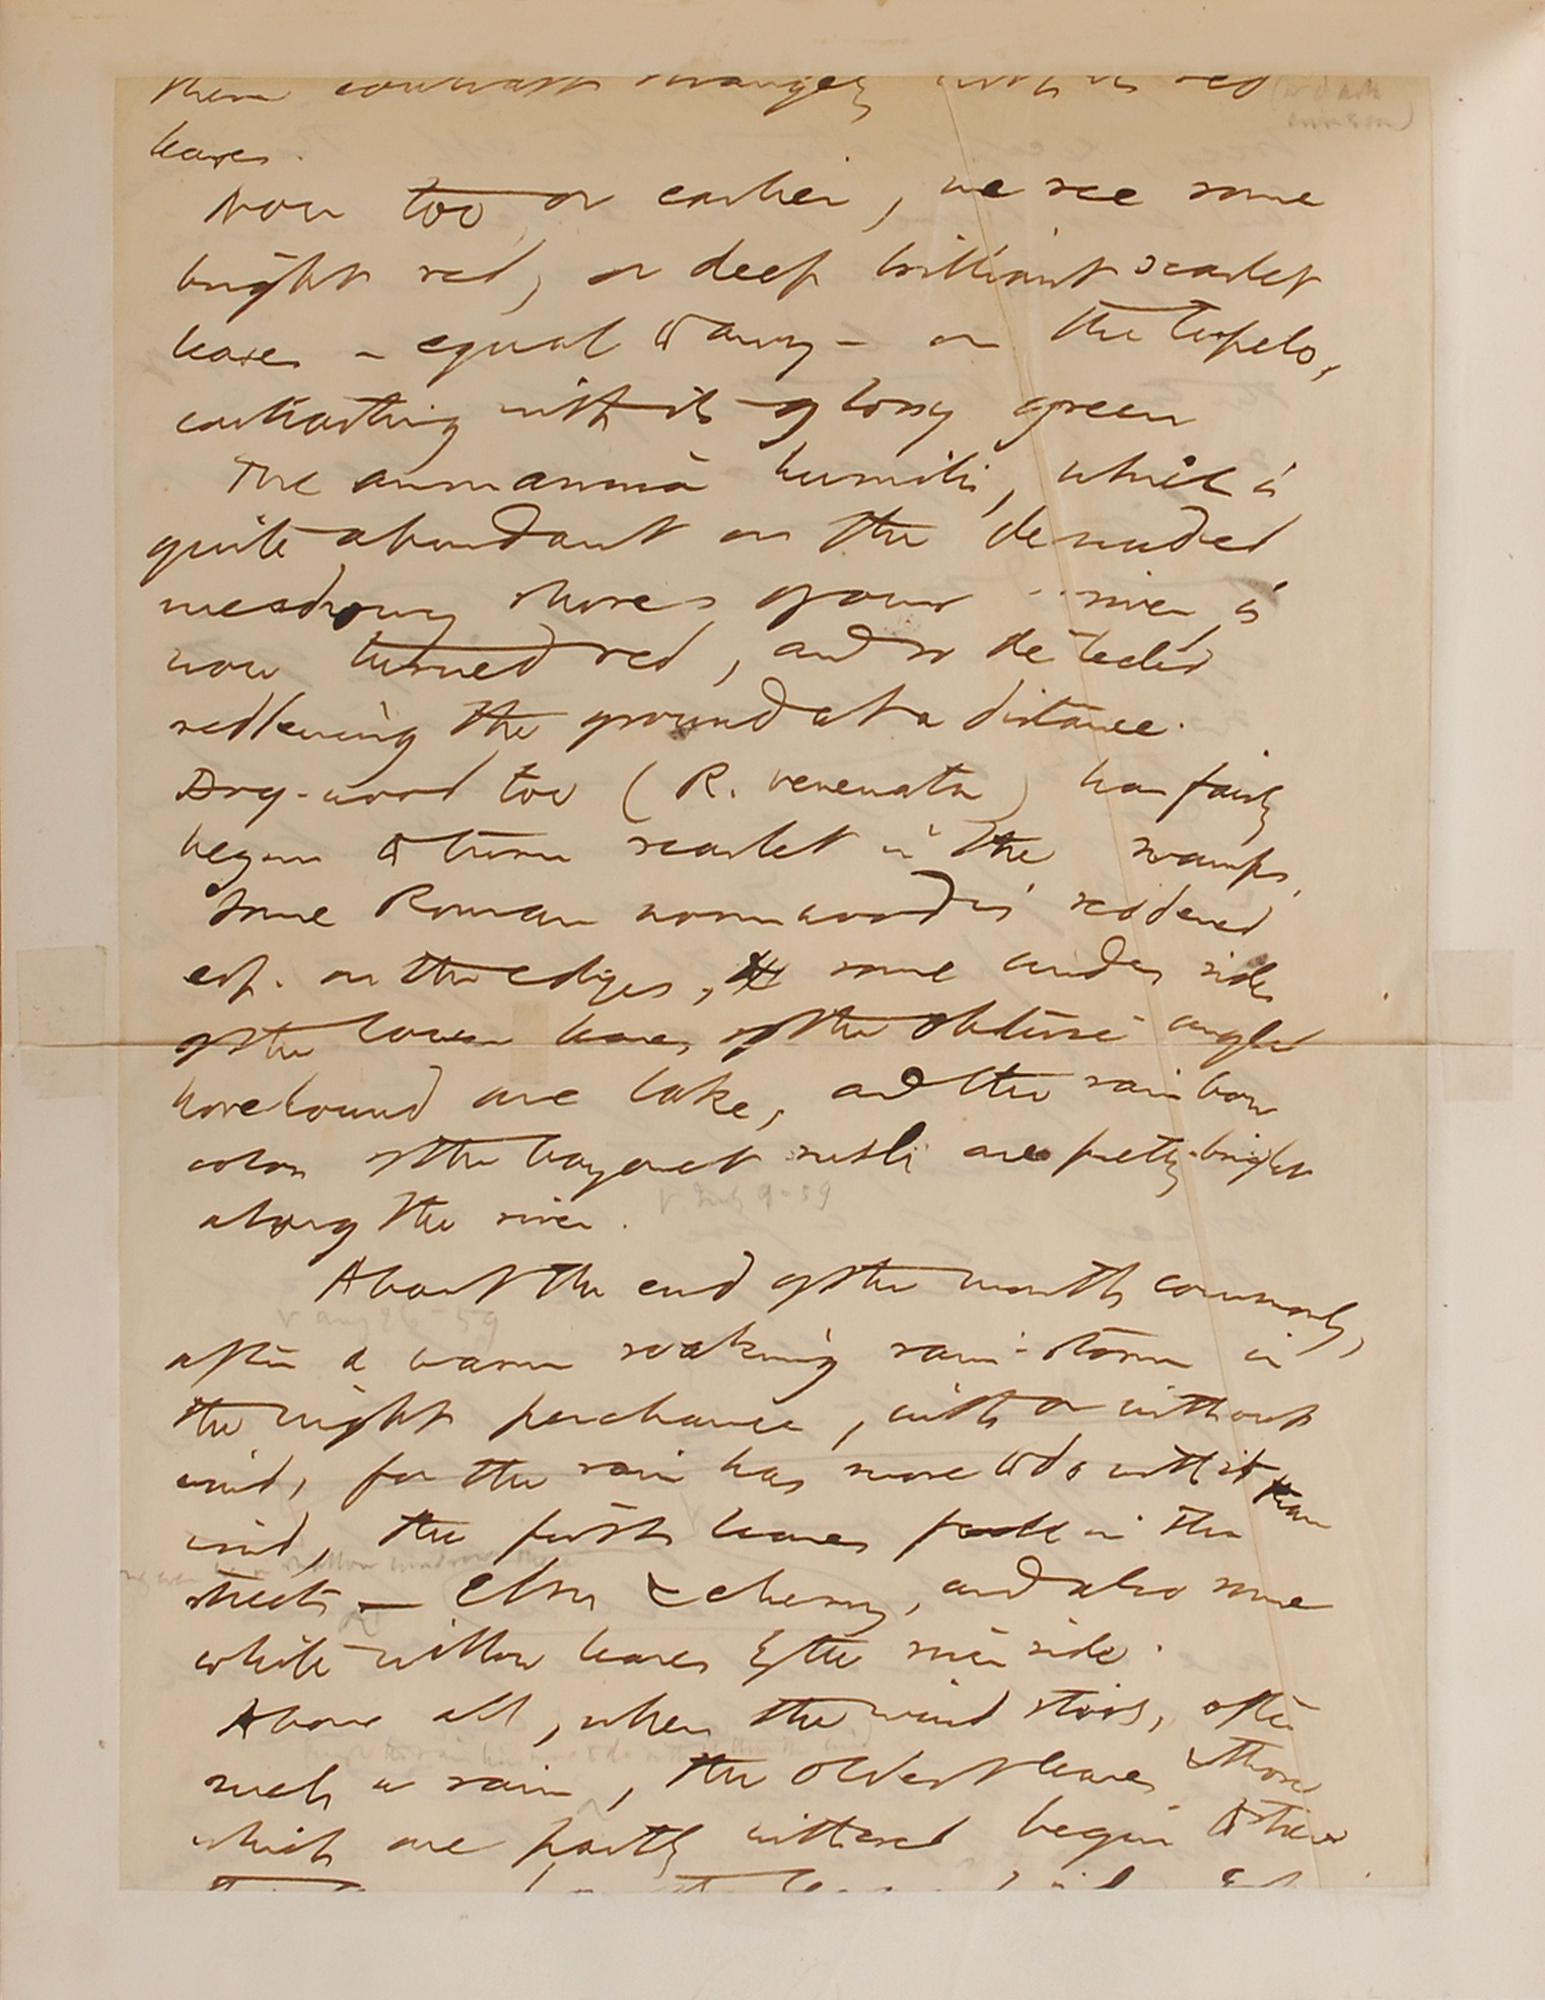 them contrast strangely with its red (or dark
crimson)
leaves.
Now too or earlier, we see some
bright red, or deep brilliant scarlet
leaves – equal to any – on the tupelo,
contrasting with its glossy green
The ammannia humilis, which is
quite abundant on the denuded
meadowy shores of our river is
now turned red, and so detected
reddening the ground at a distance.
Dog-wood too (R. venenata) has fairly
begun to turn scarlet in the swamps,
Some Roman wormwood is reddened
esp. on the edges, some under sides
of the lower leaves of the obtuse-angled
horehound are lake, and the rainbow
colors of the bayonet rush are pretty bright
along the river.
V July 9-59
About the end of the month commonly,
V aug 26-59
after a warm soaking rain-storm in
the night perchance, with or without
wind, for the rain has more to do with it than
wind, the first leaves fall in the
streets – Elm & cherry, and also some
white-willow leaves by the river side.
Above all, when the wind stirs, after
though the rain has more to do with it than the wind
such a rain, the oldest leaves & those
which are partly withered begin to